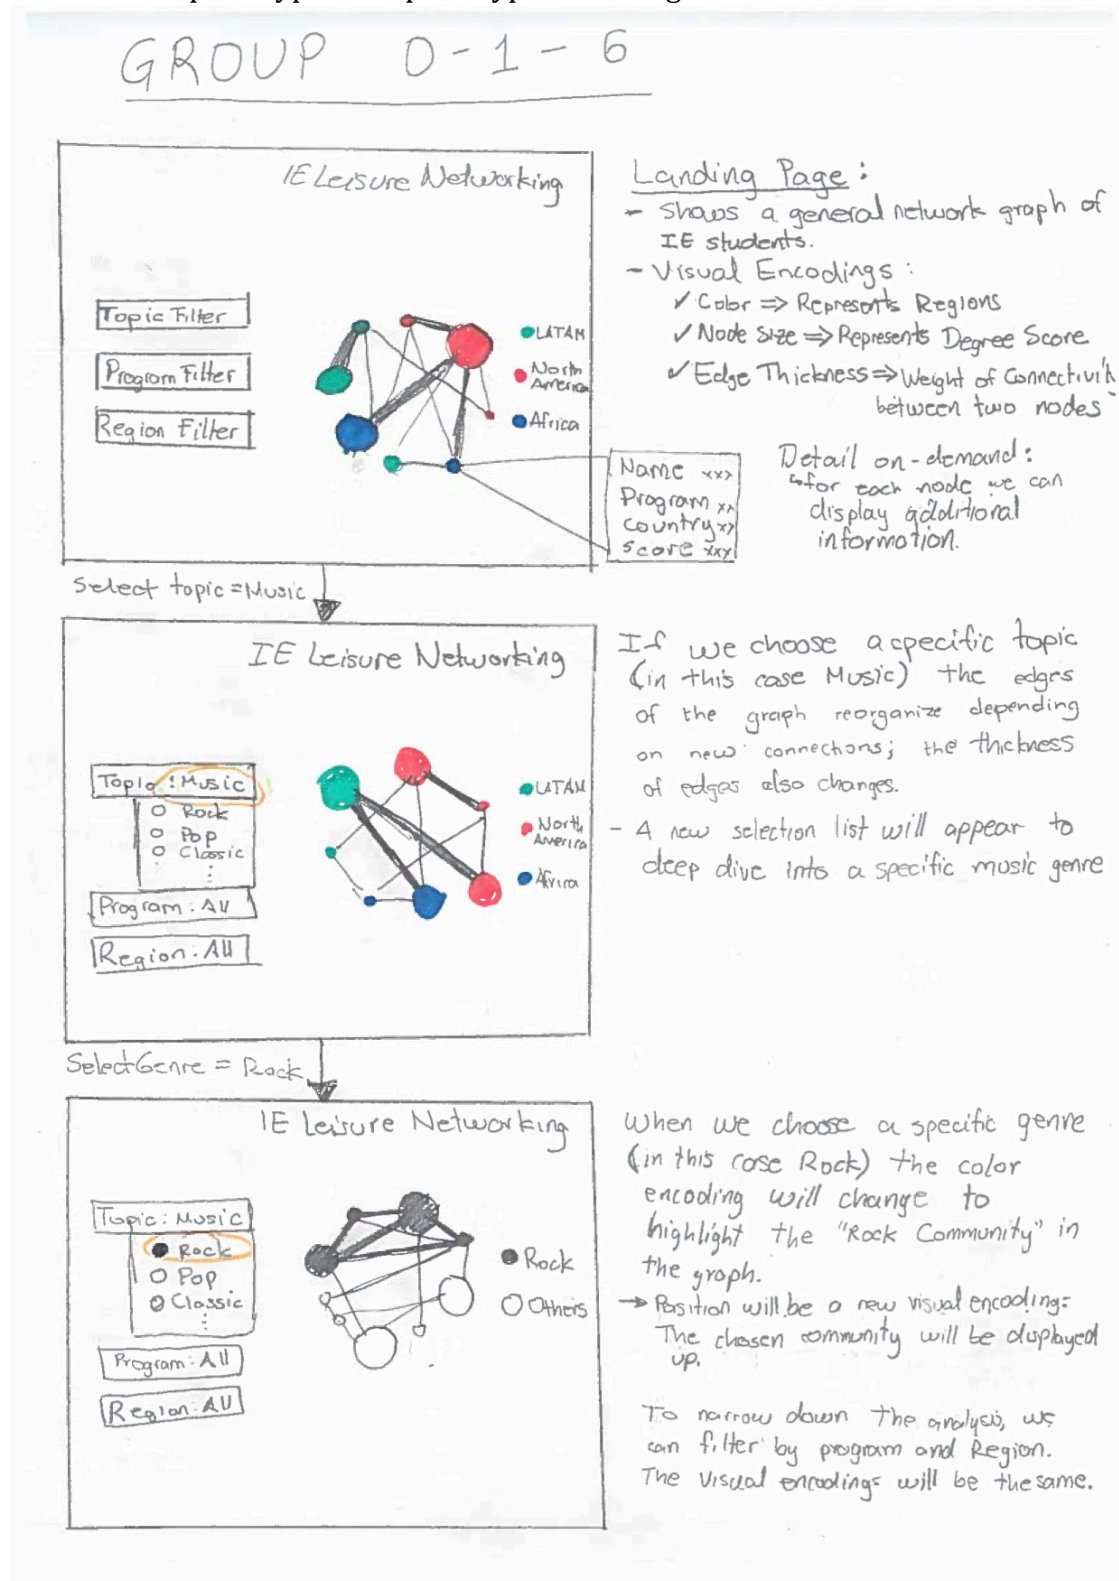 GROUP 0-1-6
IE Leisure Networking
Topic Filter
Program Filter
Region Filter
LATAM
North
America
Africa
Name xxx
Program xx
Country xx
Score xxx
Landing Page:
- Shows a general network graph of
IE students.
- Visual Encodings:
✓ Color => Represents Regions
✓ Node Size => Represents Degree Score
✓ Edge Thickness => Weight of Connectivit
between two nodes
Detail on-demand:
↳ for each node we can
display additional
information.
Select topic = Music
IE Leisure Networking
Topic: Music
Rock
Pop
Classic
Program: All
Region: All
LATAM
North
America
Africa
If we choose a specific topic
(in this case Music) the edges
of the graph reorganize depending
on new connections; the thickness
of edges also changes.
- A new selection list will appear to
deep dive into a specific music genre
Select Genre = Rock
IE Leisure Networking
Topic: Music
Rock
Pop
Classic
Program: All
Region: All
Rock
Others
When we choose a specific genre
(in this case Rock) the color
encoding will change to
highlight the "Rock Community" in
the graph.
→ Position will be a new visual encoding:
The chosen community will be displayed
up.
To narrow down the analysis, we
can filter by program and Region.
The visual encodings will be the same.